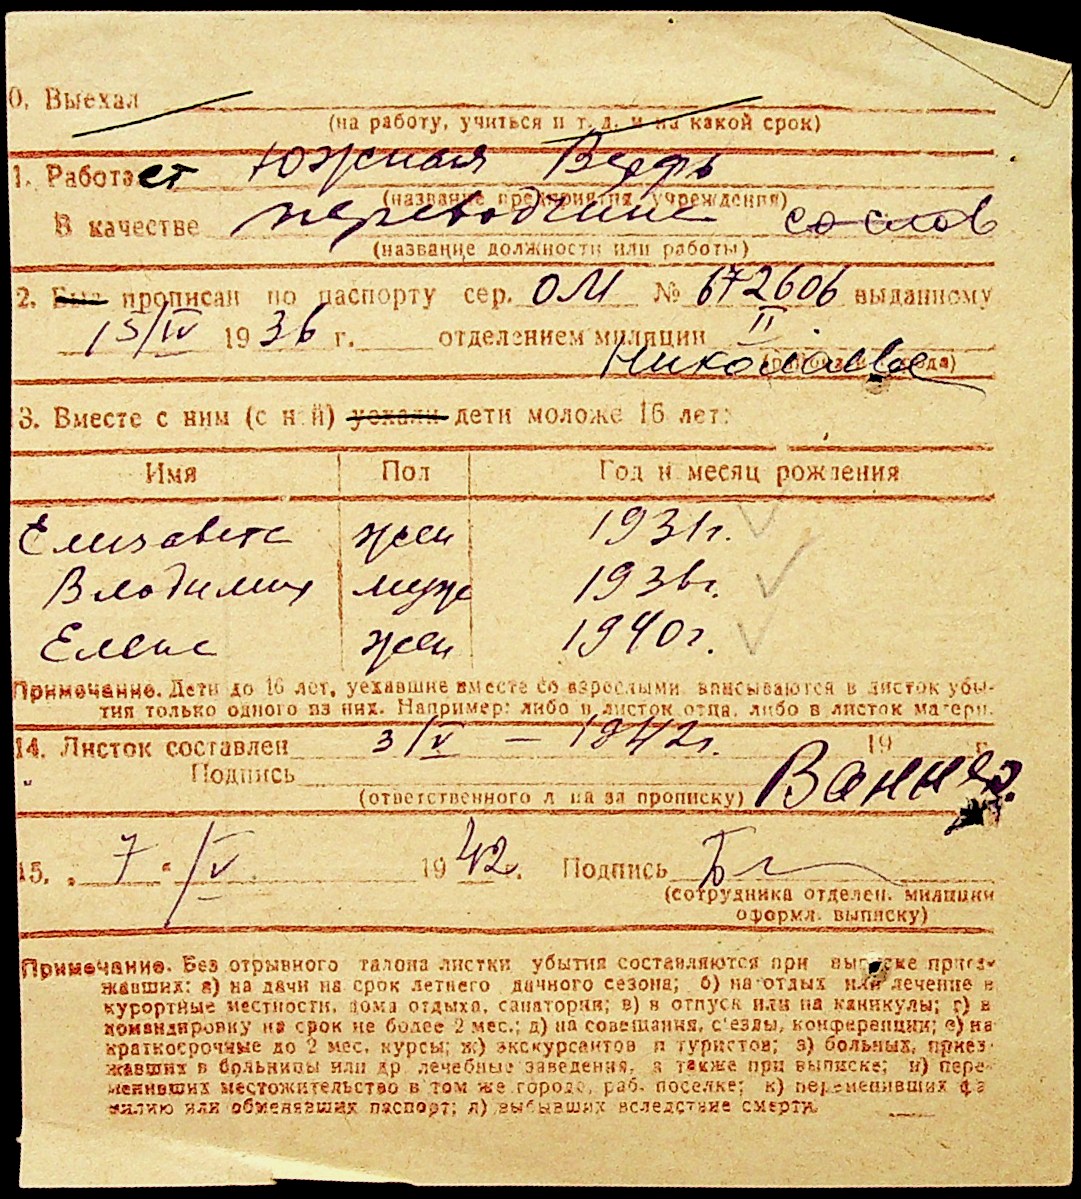 0. Выехал
(на работу, учиться и т. д. и на какой срок)
1. Работает Южная Верфь
(название предприятия, учреждения)
В качестве
(название должности или работы)
2. Был прописан по паспорту сер. ОМ № 672606 выданному
15/IV 1936 г. отделением милиции II.
Николаеве
3. Вместе с ним (с ней) уехали дети моложе 16 лет:
Имя Пол Год и месяц рождения
Елизавета жен 1931г.
Владимир муж 1936г.
Елена жен 1940г.
Примечание. Дети до 16 лет, уехавшие вместе со взрослыми, вписываются в листок убы-
тия только одного из них. Например: либо в листок отца, либо в листок матери.
14. Листок составлен 3/IV – 1942г. 19 г.
Подпись
(ответственного лица за прописку)
15. „ 7 “ /V 1942г. Подпись
(сотрудника отделен. милиции
оформл. выписку)
Примечание. Без отрывного талона листки убытия составляются при выписке приез-
жавших: а) на дачи на срок летнего дачного сезона; б) на отдых или лечение в
курортные местности, дома отдыха, санатории; в) в отпуск или на каникулы; г) в
командировку на срок не более 2 мес.; д) на совещания, с'езды, конференции; е) на
краткосрочные до 2 мес. курсы; ж) экскурсантов и туристов; з) больных, приез-
жавших в больницы или др. лечебные заведения, а также при выписке; и) пере-
менивших местожительство в том же городе, раб. поселке; к) переменивших фа-
милию или обменявших паспорт; л) выбывших вследствие смерти.